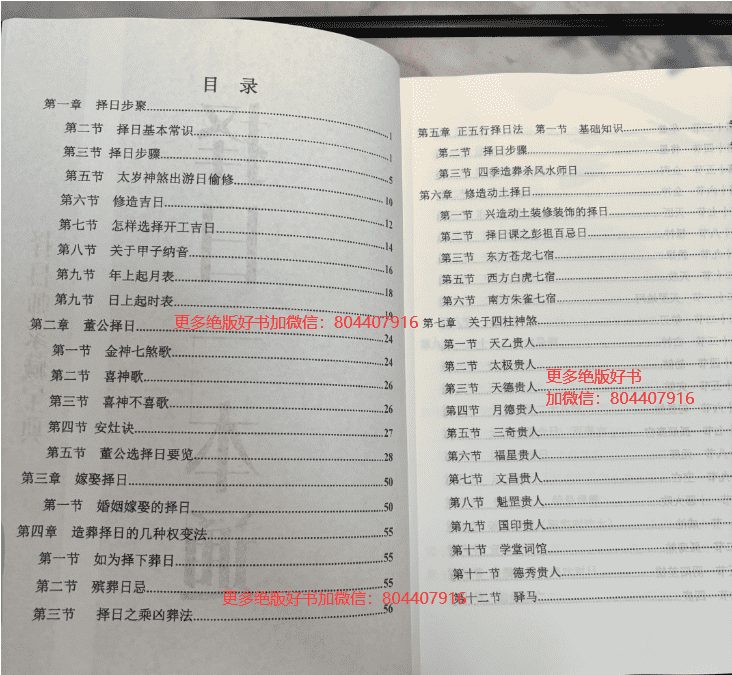 目 录
第一章 择日步聚
第二节 择日基本常识 1
第三节 择日步骤 1
第五节 太岁神煞出游日偷修 5
第六节 修造吉日 10
第七节 怎样选择开工吉日 12
第八节 关于甲子纳音 14
第九节 年上起月表 16
第九节 日上起时表 18
第二章 董公择日 19
更多绝版好书加微信：804407916
第一节 金神七煞歌 24
第二节 喜神歌 24
第三节 喜神不喜歌 26
第四节 安灶诀 26
第五节 董公选择日要览 27
28
第三章 嫁娶择日 50
第一节 婚姻嫁娶的择日 50
第四章 造葬择日的几种权变法 55
第一节 如为择下葬日 55
第二节 殡葬日忌 55
更多绝版好书加微信：804407916
第三节 择日之乘凶葬法 56
第五章 正五行择日法 第一节 基础知识
第二节 择日步骤
第三节 四季造葬杀风水师日
第六章 修造动土择日
第一节 兴造动土装修装饰的择日
第二节 择日课之彭祖百忌日
第三节 东方苍龙七宿
第五节 西方白虎七宿
第六节 南方朱雀七宿
第七章 关于四柱神煞
第一节 天乙贵人
第二节 太极贵人
第三节 天德贵人
更多绝版好书
加微信：804407916
第四节 月德贵人
第五节 三奇贵人
第六节 福星贵人
第七节 文昌贵人
第八节 魁罡贵人
第九节 国印贵人
第十节 学堂词馆
第十一节 德秀贵人
第十二节 驿马